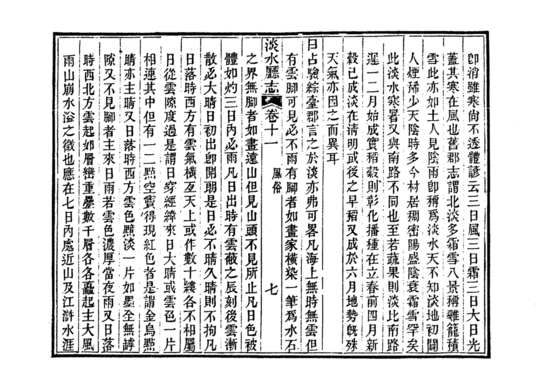 卽消雖寒尙不透體諺云三日風三日霜三日大日光
蓋其寒在風也舊郡志謂北淡多霜雪八景稱雞籠積
雪此亦如土人見陰雨卽稱爲淡水天不知淡地初闢
人煙稀少天陰時多今村居稠密陽盛陰衰霜雪罕矣
此淡水寒暑又與南路不同也至若蔬果則淡比南路
遲一二月始成實稻穀則彰化播種在立春前四月新
穀已成淡在淸明或後之早稻又成於六月地勢旣殊
天氣亦因之而異耳
曰占驗綜臺郡言之於淡亦弗可畧凡海上無時無雲但
有雲脚可見必不雨有脚者如畫家橫染一筆爲水石
淡水廳志 卷十一 風俗 七
之界無脚者如畫遠山但見山頭不見所止凡日色被
體如灼三日內必雨凡日出時有雲蔽之辰刻後雲漸
散必大晴日初出卽開朗是日必不晴久晴則不拘凡
日落時西方有雲氣橫亙天上或作數十縷各不相屬
日從雲隙度過是謂日穿經緯來日大晴或雲色一片
相連其中但有一二點空竇得現紅色者是謂金烏點
睛亦主晴又日落時西方雲色黯淡一片如墨全無罅
隙又不見脚者主來日雨若雲色濃厚當夜雨又日落
時西北方雲起如層巒重疊數千層各各矗起主大風
雨山崩水溢之徵也應在七日內處近山及江滸水涯